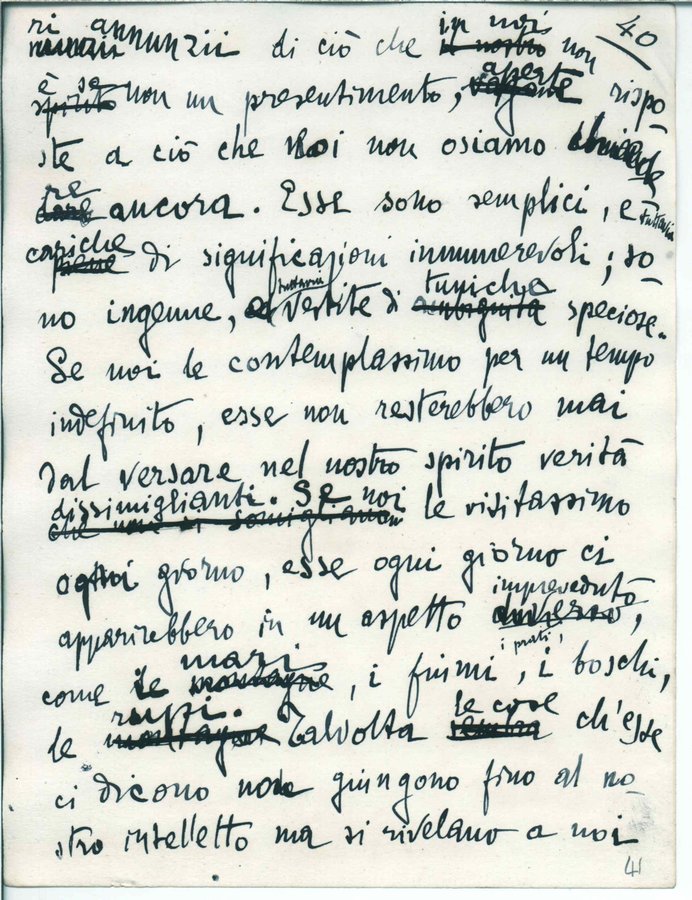 40
ri annunzii di ciò che in noi non
è se non un presentimento, aperte rispo-
ste a ciò che noi non osiamo chiede
re ancora. Esse sono semplici, e tuttavia
cariche di significazioni innumerevoli; so-
no ingenue, tuttavia vestite di tuniche speciose.
Se noi le contemplassimo per un tempo
indefinito, esse non resterebbero mai
dal versare nel nostro spirito verità
dissimiglianti. Se noi le visitassimo
ogni giorno, esse ogni giorno ci
apparirebbero in un aspetto impreveduto,
come i mari, i fiumi, i prati, i boschi,
le rupi. Talvolta le cose ch'esse
ci dicono non giungono fino al no-
stro intelletto ma si rivelano a noi
41